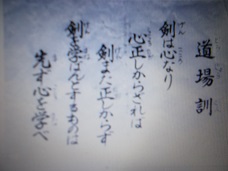 道場訓
剣は心なり
心正しからざれば
剣また正しからず
剣を学ばんとするものは
先ず心を学べ